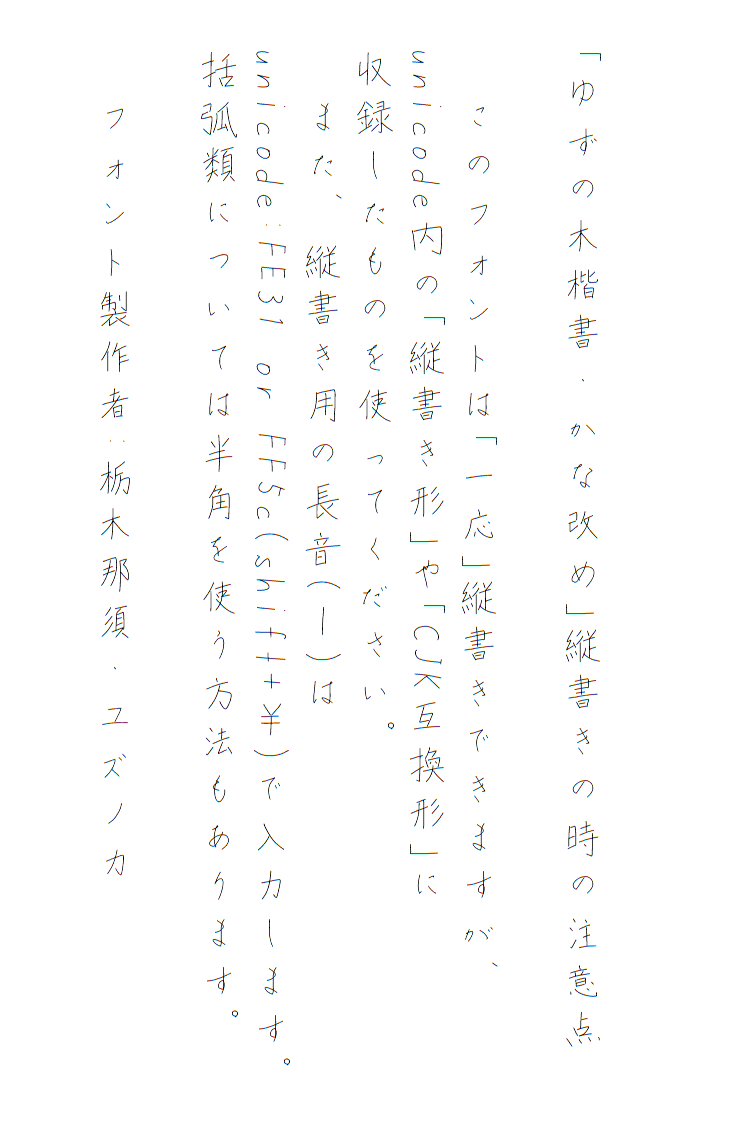 「ゆずの木楷書．かな改め」縦書きの時の注意点
このフォントは「一応」縦書きできますが、
unicode内の「縦書き形」や「CJK互換形」に
収録したものを使ってください。
また、縦書き用の長音(ー)は
unicode:FE31 or FF5c(shift+¥)で入力します。
括弧類については半角を使う方法もあります。
フォント製作者:栃木那須．ユズノカ